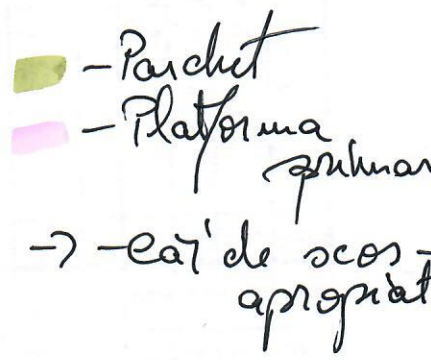 - Parchet
- Platforma
primar
-> - Căi de scos -
apropiat